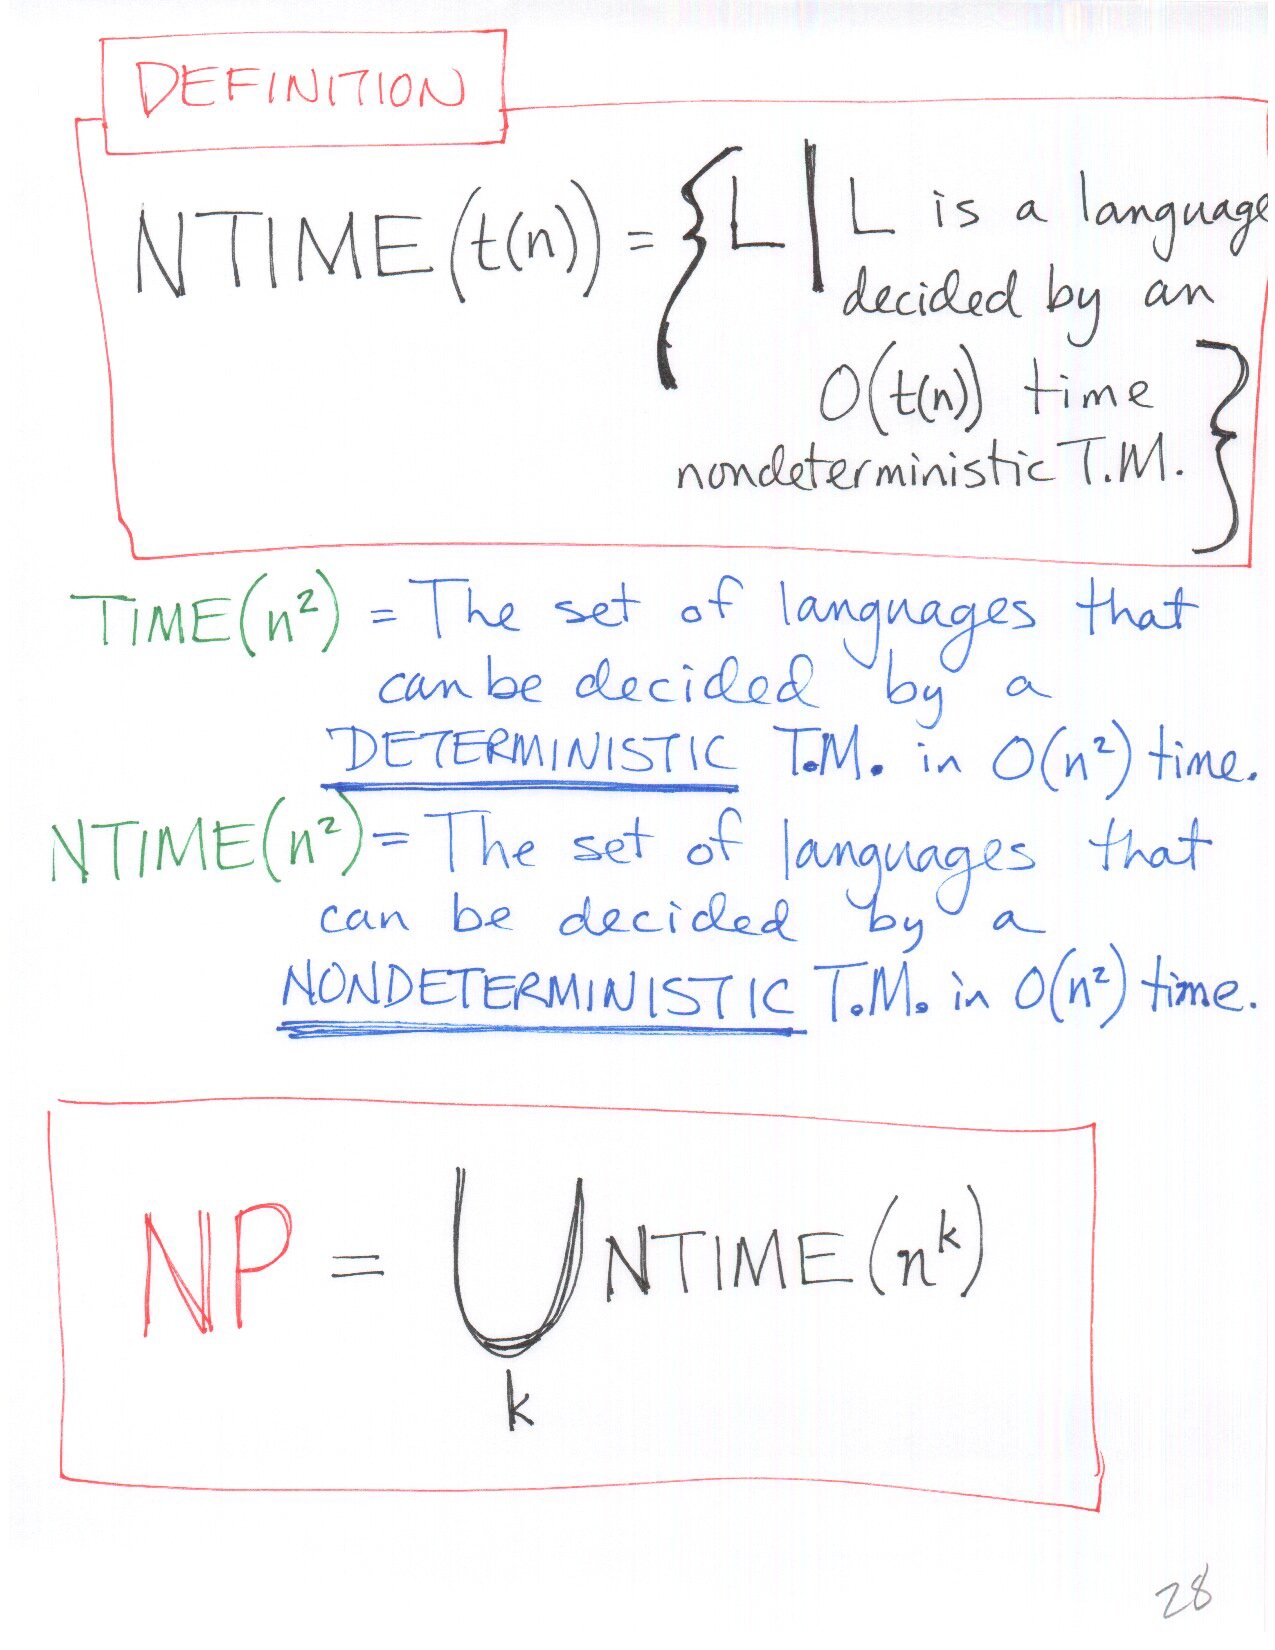 DEFINITION
NTIME(t(n)) = { L | L is a language
decided by an
O(t(n)) time
nondeterministic T.M. }
TIME(n²) = The set of languages that
can be decided by a
DETERMINISTIC T.M. in O(n²) time.
NTIME(n²) = The set of languages that
can be decided by a
NONDETERMINISTIC T.M. in O(n²) time.
NP = ⋃ NTIME(nᵏ)
k
28